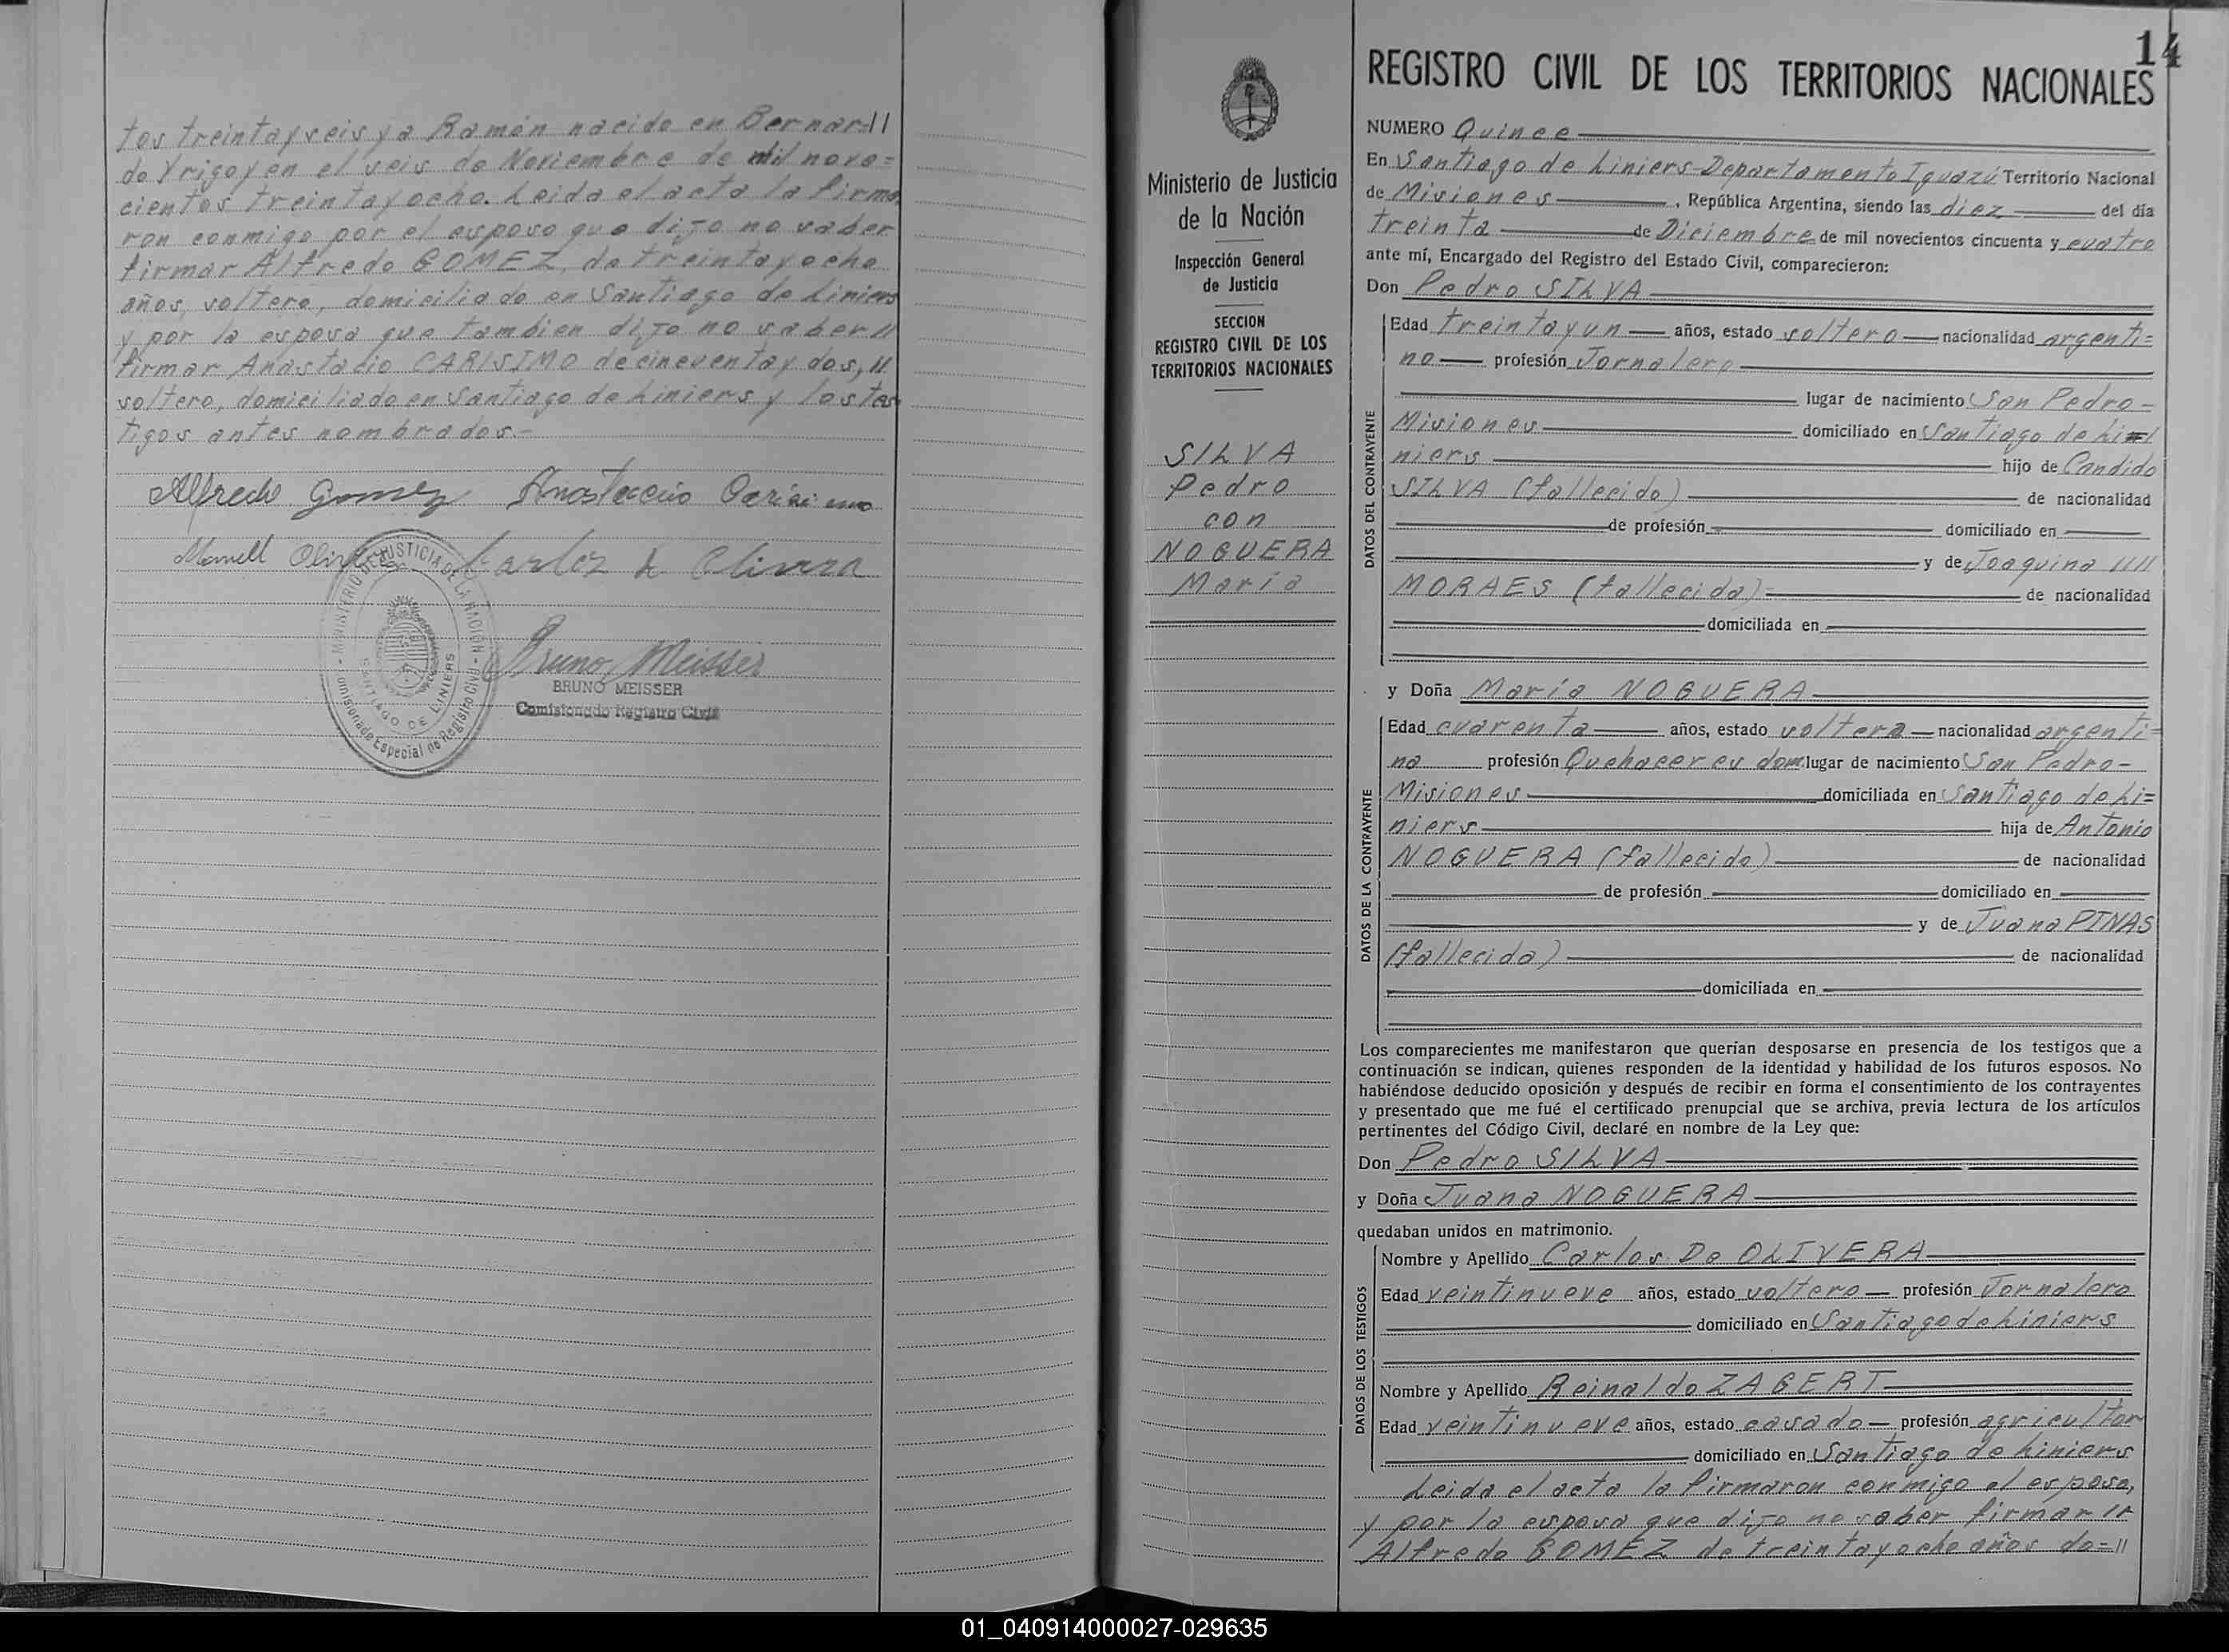 tos treintayseis y a Ramón nacido en Bernar=//
do Yrigoyen el seis de Noviembre de mil nove=
cientos treintayocho. Leida el acta la firma
ron conmigo por el esposo que dijo no saber
firmar Alfredo GOMEZ, de treintayocho
años, soltero, domiciliado en Santiago de Liniers
y por la esposa que tambien dijo no saber//
firmar Anastacio CARISIMO de cincuentay dos, //
soltero, domiciliado en Santiago de Liniers y los tes
tigos antes nombrados.-
Alfredo Gomez Anastacio Carisimo
Carlos
MINISTERIO DE JUSTICIA DE LA NACION
SANTIAGO DE LINIERS
Comisionado Especial de Registro Civil
Bruno Meisser
BRUNO MEISSER
Comisionado Registro Civil
14
Ministerio de Justicia
de la Nación
Inspección General
de Justicia
SECCION
REGISTRO CIVIL DE LOS
TERRITORIOS NACIONALES
SILVA
Pedro
con
NOGUERA
María
REGISTRO CIVIL DE LOS TERRITORIOS NACIONALES
NUMERO Quince
En Santiago de Liniers-Departamento Iguazú Territorio Nacional
de Misiones, República Argentina, siendo las diez del día
treinta de Diciembre de mil novecientos cincuenta y cuatro
ante mí, Encargado del Registro del Estado Civil, comparecieron:
Don Pedro SILVA
DATOS DEL CONTRAYENTE
Edad treintayun años, estado soltero nacionalidad argenti=
no profesión Jornalero
lugar de nacimiento San Pedro-
Misiones domiciliado en Santiago de Li=/
niers hijo de Candido
SILVA (fallecido) de nacionalidad
de profesión domiciliado en
y de Joaquina ////
MORAES (fallecida) de nacionalidad
domiciliada en
y Doña María NOGUERA
DATOS DE LA CONTRAYENTE
Edad cuarenta años, estado soltera nacionalidad argenti=
na profesión Quehaceres dom. lugar de nacimiento San Pedro-
Misiones domiciliada en Santiago de Li=
niers hija de Antonio
NOGUERA (fallecido) de nacionalidad
de profesión domiciliado en
y de Juana PINAS
(fallecida) de nacionalidad
domiciliada en
Los comparecientes me manifestaron que querían desposarse en presencia de los testigos que a
continuación se indican, quienes responden de la identidad y habilidad de los futuros esposos. No
habiéndose deducido oposición y después de recibir en forma el consentimiento de los contrayentes
y presentado que me fué el certificado prenupcial que se archiva, previa lectura de los artículos
pertinentes del Código Civil, declaré en nombre de la Ley que:
Don Pedro SILVA
y Doña Juana NOGUERA
quedaban unidos en matrimonio.
DATOS DE LOS TESTIGOS
Nombre y Apellido Carlos De OLIVERA
Edad veintinueve años, estado soltero profesión Jornalero
domiciliado en Santiago de Liniers
Nombre y Apellido Reinaldo ZAGERT
Edad veintinueve años, estado casado profesión agricultor
domiciliado en Santiago de Liniers
Leida el acta la firmaron conmigo el esposo,
y por la esposa que dijo no saber firmar //
Alfredo GOMEZ de treintayocho años do=//
01_040914000027-029635